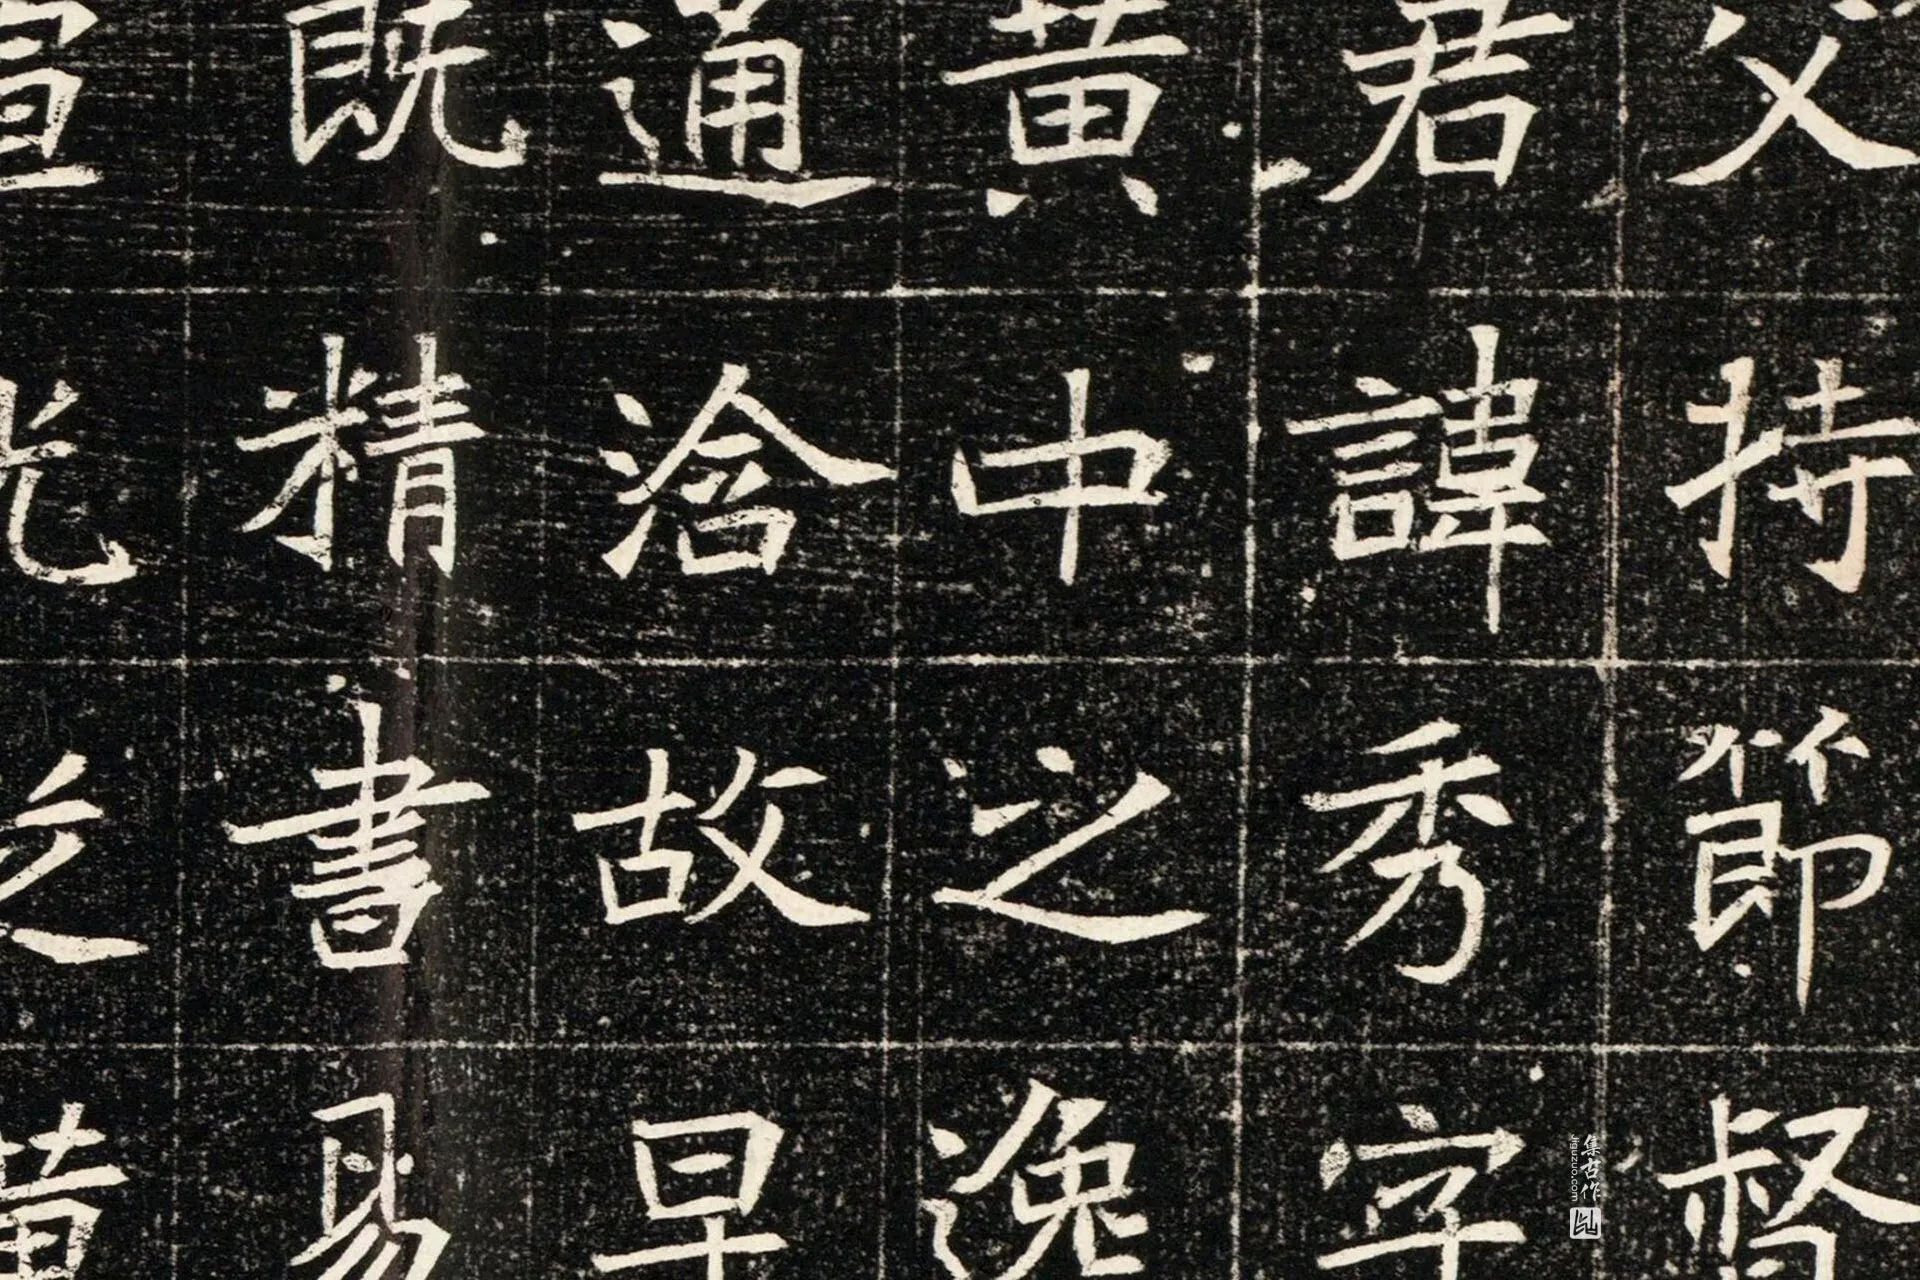 父持節督
君諱秀字
黄中之逸
通洽故早
既精書易
之
集古作
jiguzuo.com